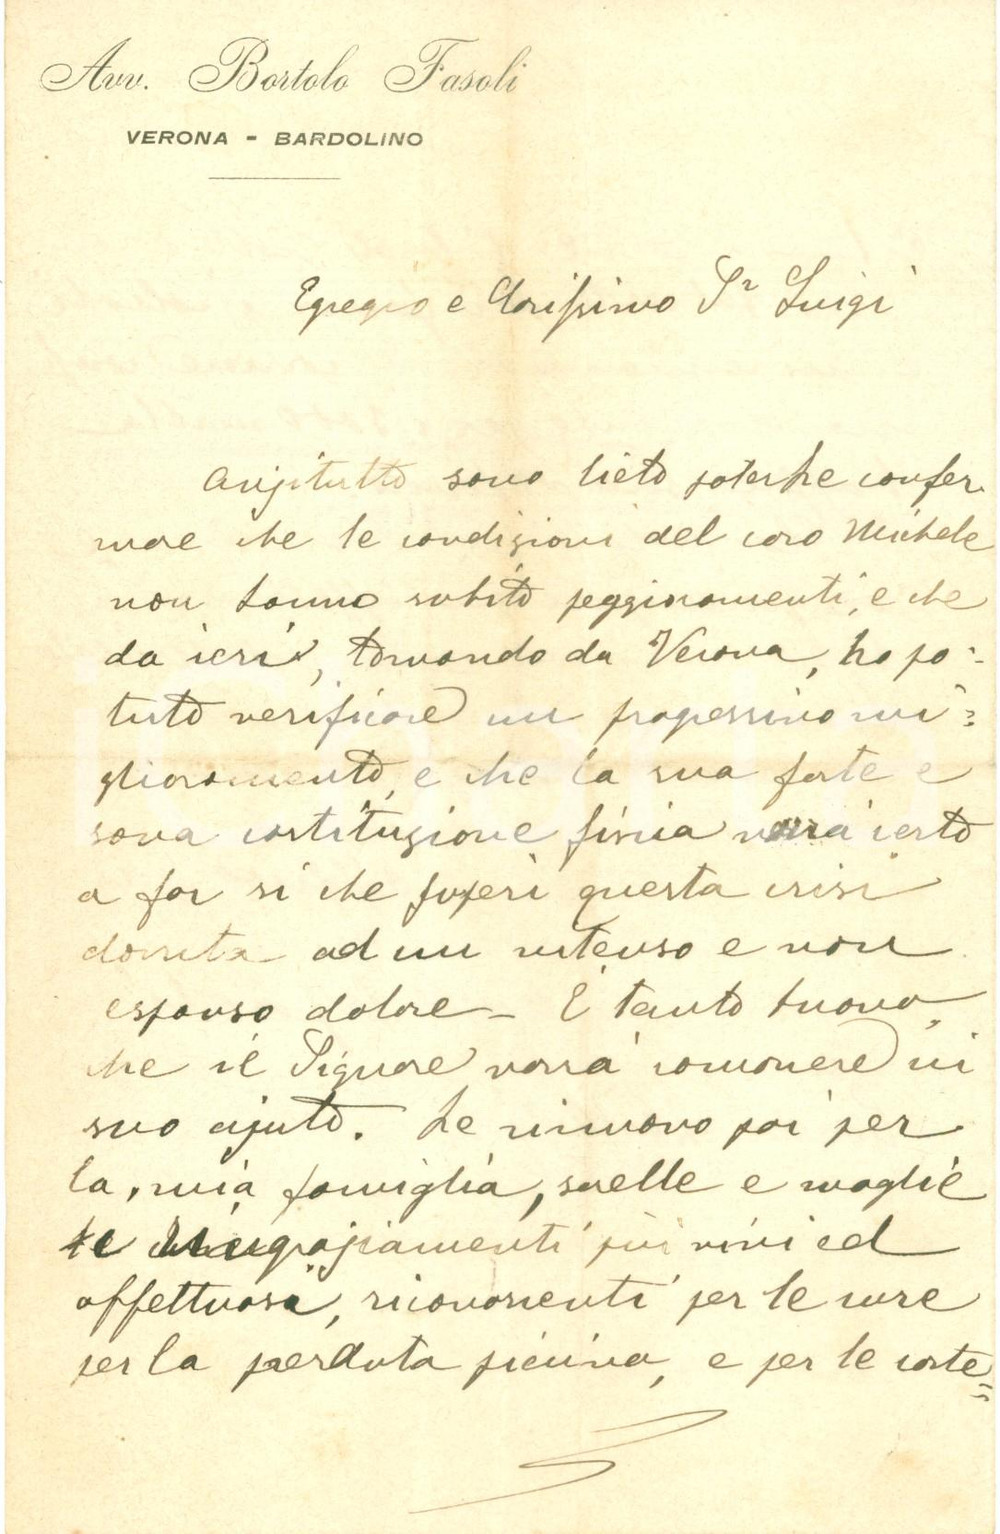 Avv. Bortolo Fasoli
VERONA - BARDOLINO
Egregio e Carissimo Sr Luigi
Anzitutto sono lieto poterLe confer-
mare che le condizioni del caro Michele
non hanno subito peggioramenti, e che
da ieri, tornando da Verona, ho po-
tuto verificare un progressivo mi=
glioramento, e che la sua forte e
sana costituzione fisica varrà certo
a far sì che superi questa crisi
dovuta ad un intenso e non
espanso dolore - È tanto buono,
che il Signore vorrà concorrere in
suo ajuto. Le rinnovo poi per
la mia famiglia, sorelle e moglie
i ringraziamenti più vivi ed
affettuosi, riconoscenti per le cure
per la perduta piccina, e per le corte=